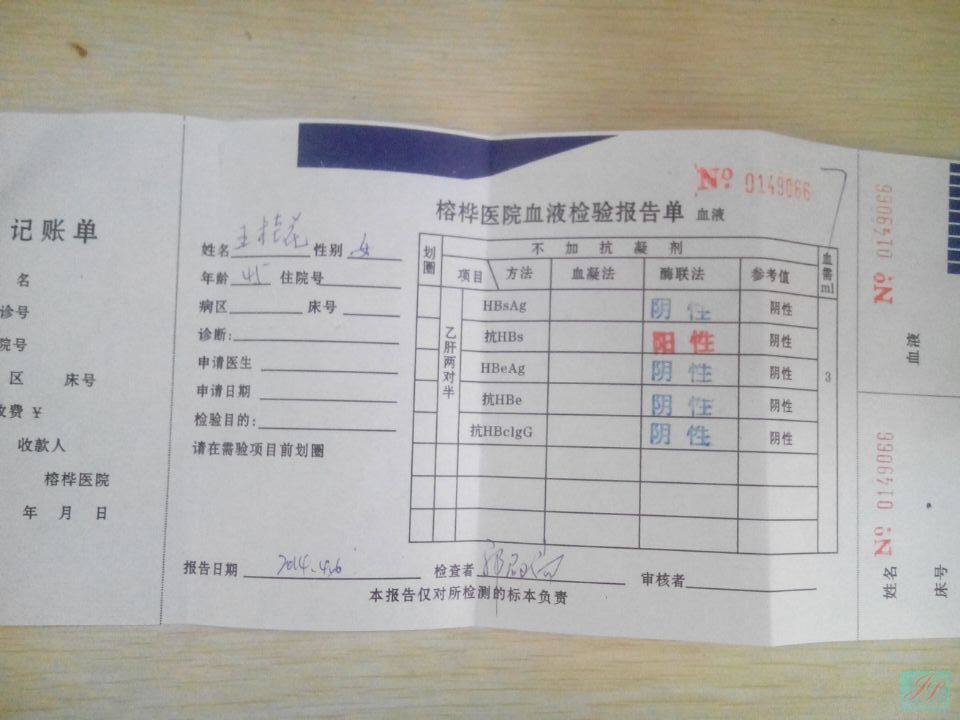 记账单
名
诊号
院号
区 床号
收费 ¥
收款人
榕桦医院
年 月 日
№ 0149066
榕桦医院血液检验报告单 血液
姓名 王桂花 性别 女
年龄 45 住院号
病区 床号
诊断:
申请医生
申请日期
检验目的:
请在需验项目前划圈
划圈 不加抗凝剂 血需ml
项目 方法 血凝法 酶联法 参考值
乙肝两对半
HBsAg 阴性 阴性
抗HBs 阳性 阴性
HBeAg 阴性 阴性
抗HBe 阴性 阴性
抗HBcIgG 阴性 阴性
3
报告日期 2014.4.6 检查者 审核者
本报告仅对所检测的标本负责
№ 0149066
血液
№ 0149066
姓名
床号